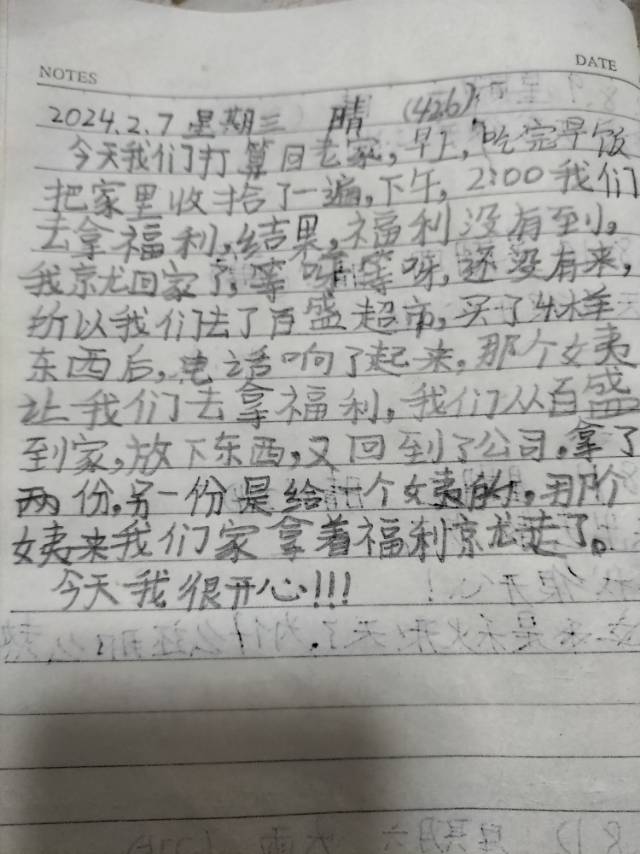 NOTES
DATE
2024.2.7 星期三 晴 (426)
今天我们打算回老家,早上,吃完早饭
把家里收拾了一遍,下午,2:00我们
去拿福利,结果,福利没有到。
我京尤回家了,等呀等呀,还没有来,
所以我们去了百盛超市,买了样
东西后,电话响了起来,那个姨
让我们去拿福利,我们从百盛
到家,放下东西,又回到了公司,拿了
两份,另一份是给个姨的,那个
姨来我们家拿着福利京尤走了。
今天我很开心!!!